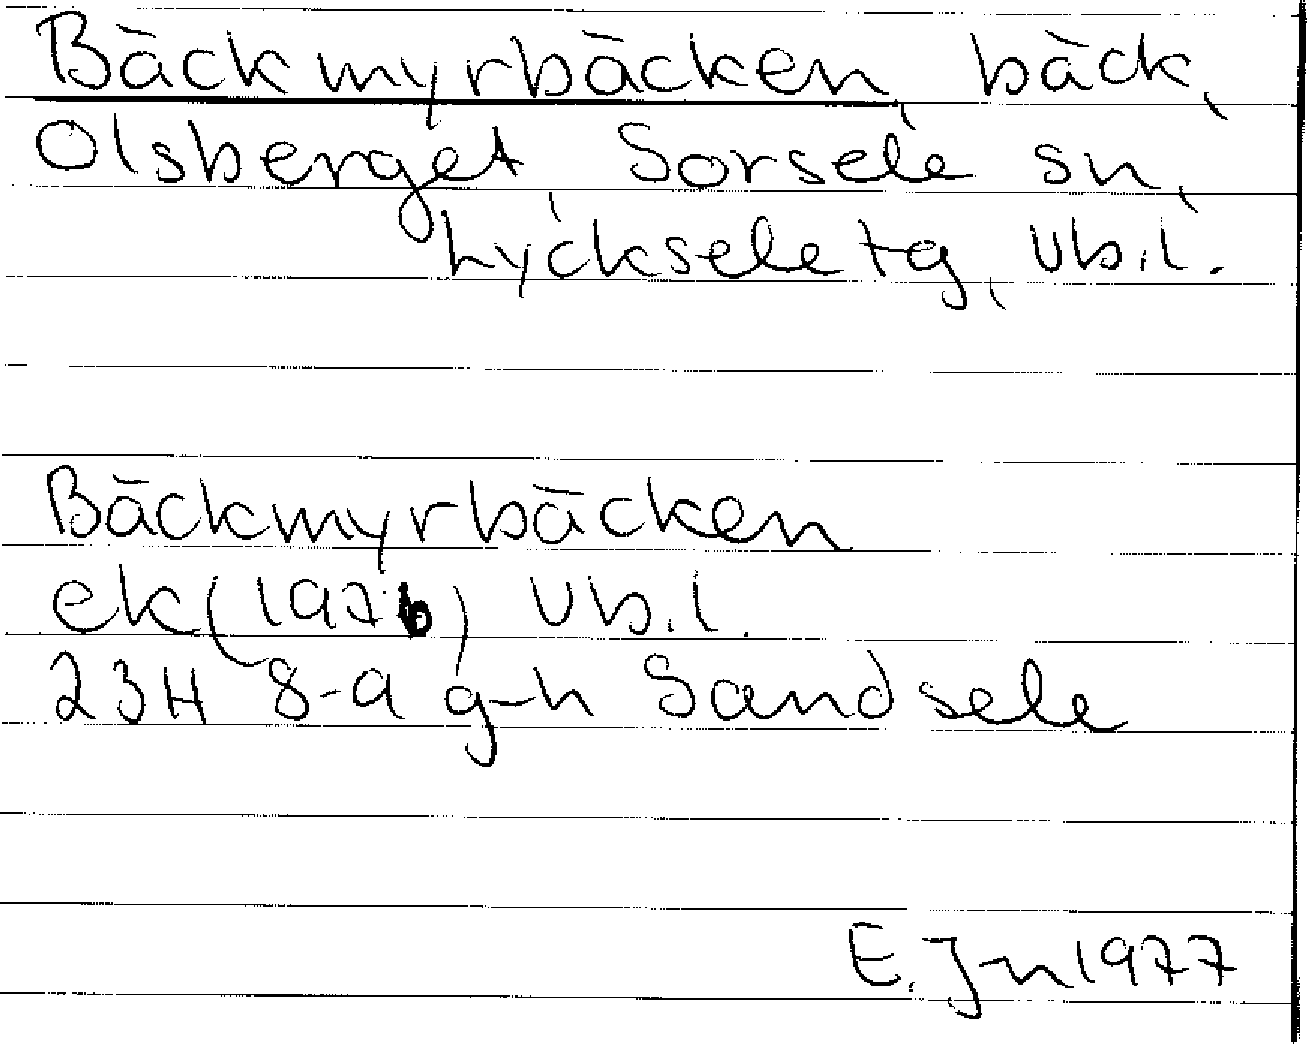 Bäckmyrbäcken, bäck,
Olsberget, Sorsele sn,
Lycksele tg, Vb.l.
Bäckmyrbäcken
ek(1976) Vb.l.
23H 8-9 g-h Sandsele
E. Jn 1977